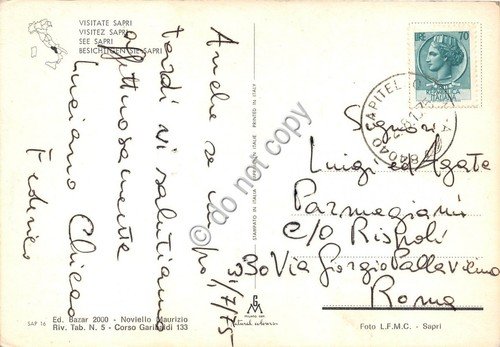 VISITATE SAPRI
VISITEZ SAPRI
SEE SAPRI
BESICHTIGEN SIE SAPRI
LIRE 70
ITALIA
84040 CAPITEL
Anche se un po'
tardi vi salutiamo
affettuosamente
Luciano Chicco
Federico
1/7/75
PRINTED IN ITALY
STAMPATO IN ITALIA
Signori
Luigi ed Agate
Parmegiani
c/o Rispoli
30 Via Giorgio Pallavicino
Roma
do not copy
GM
SAP 16
Ed. Bazar 2000 - Noviello Maurizio
Riv. Tab. N. 5 - Corso Garibaldi 133
Foto L.F.M.C. - Sapri